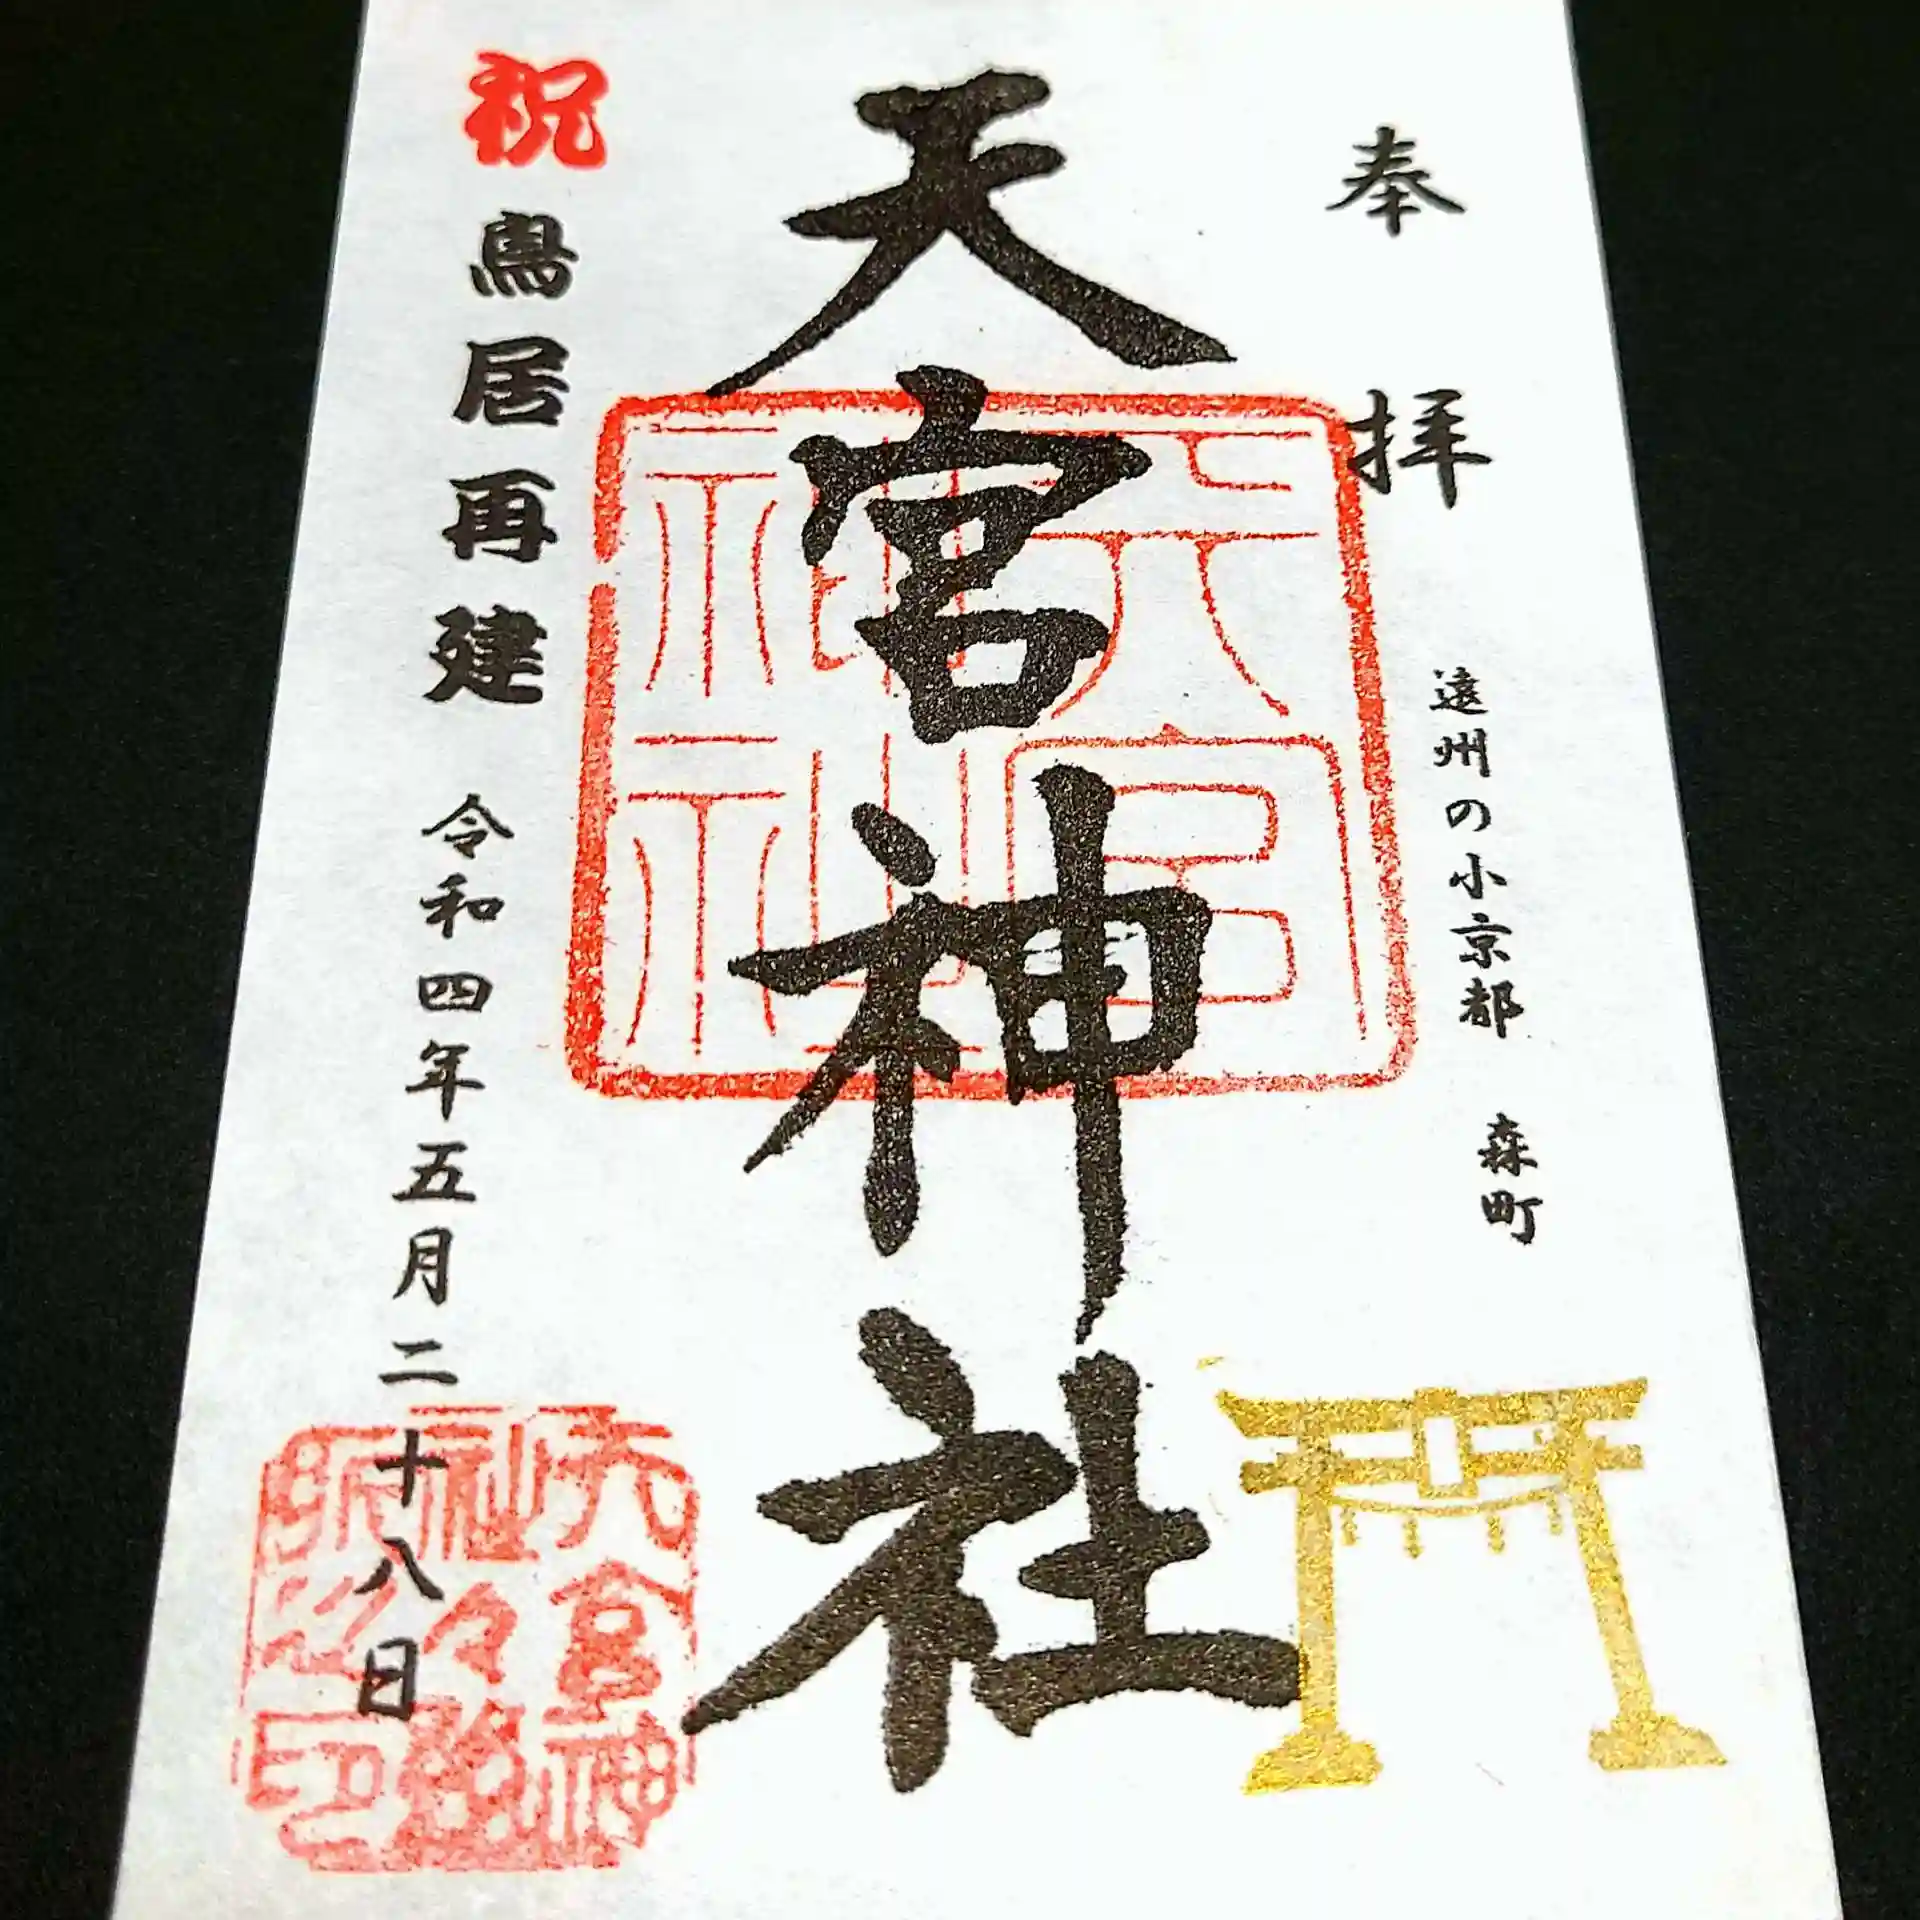 奉拝
遠州の小京都 森町
天宮神社
天宮神社
祝鳥居再建 令和四年五月二十八日
天宮神
社々務
所之印